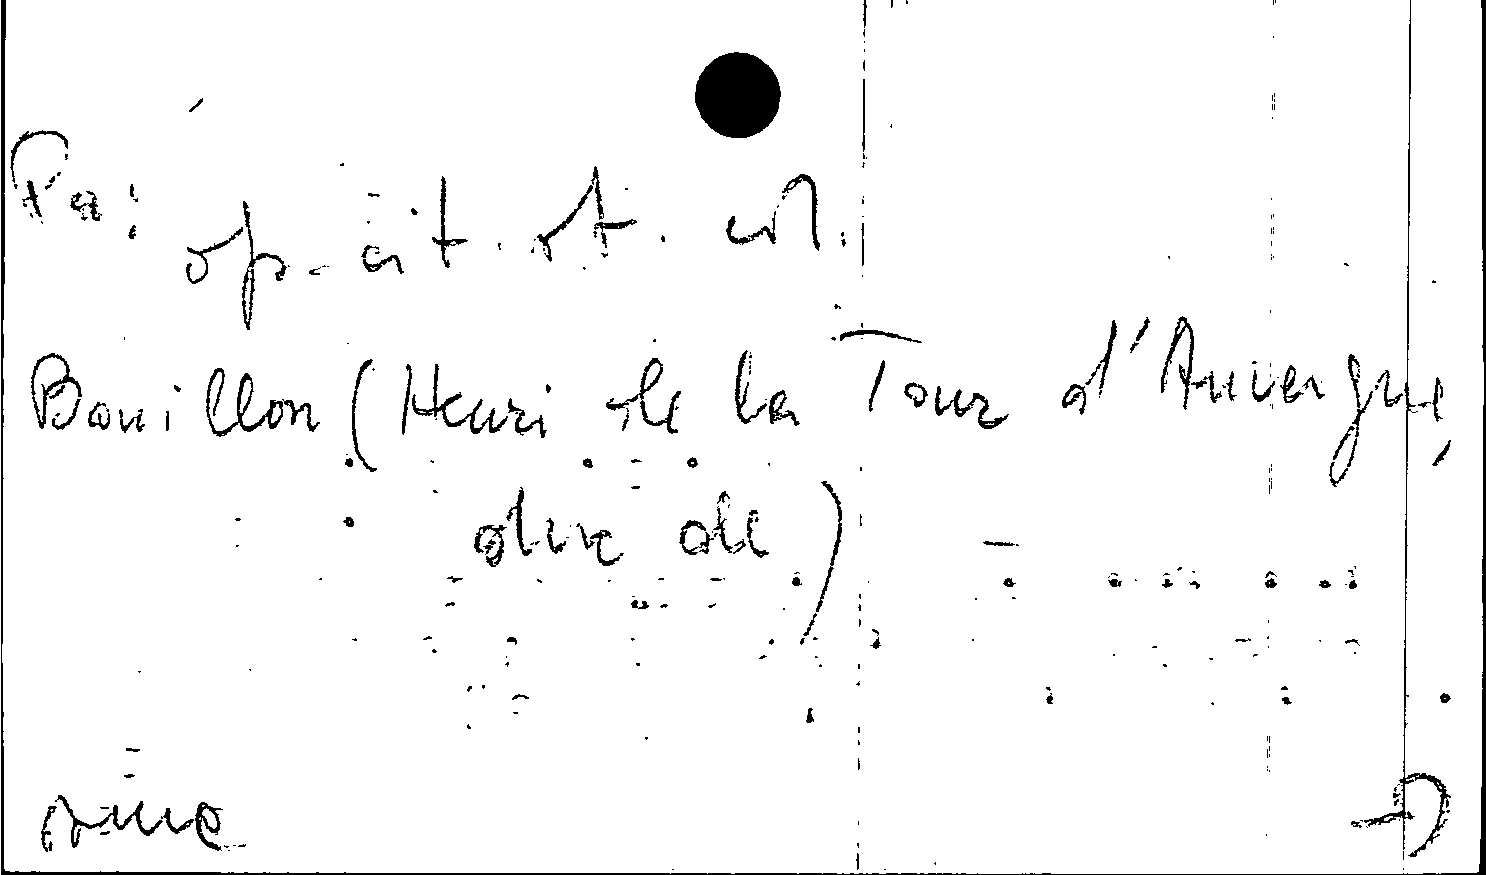 Pa:
op. cit. st. col.
Bouillon (Henri de la Tour d'Auvergne,
duc de)